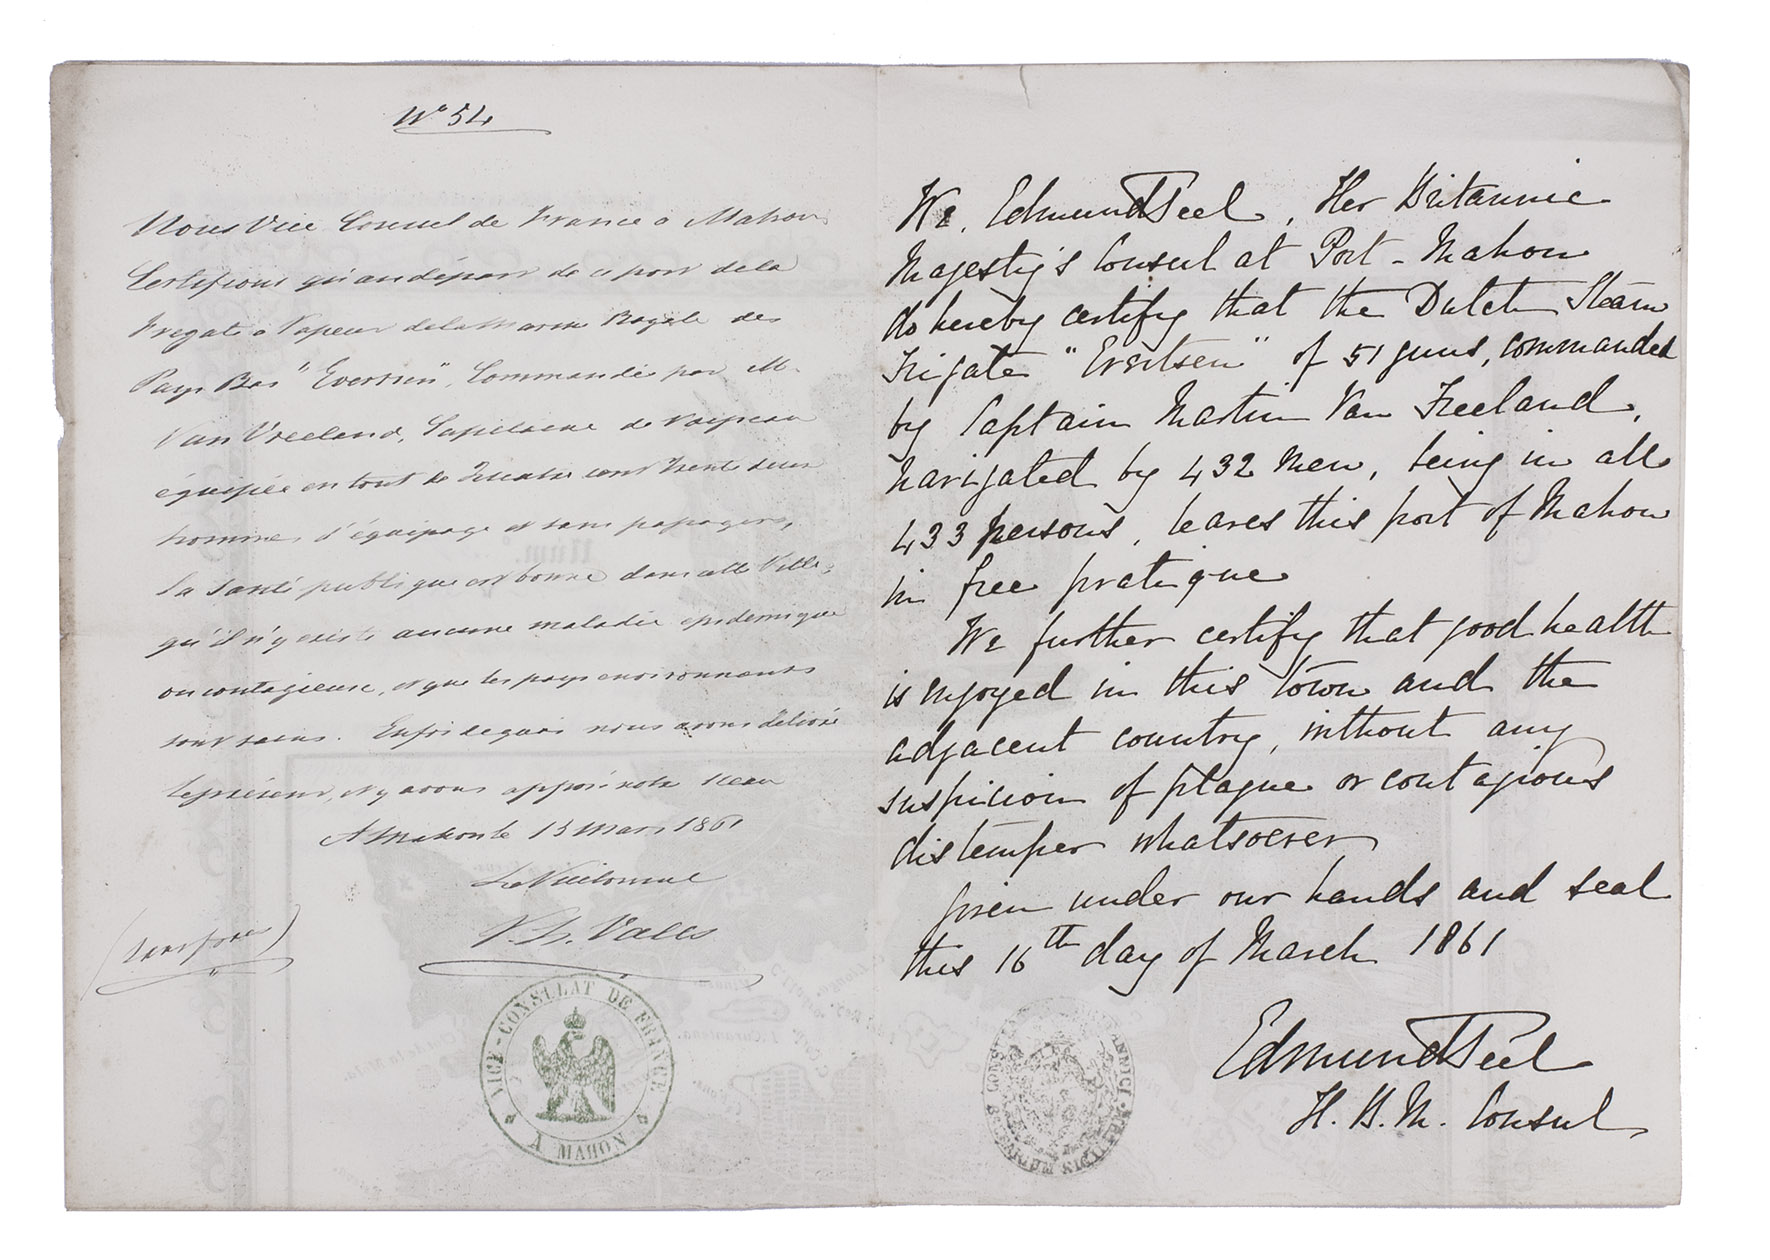 Nº 54
Nous Vice Consul de France à Mahon
Certifions qu'au départ de ce port de la
Frégate à Vapeur de la Marine Royale des
Pays Bas "Evertsen", Commandée par M.
Van Vreeland, Capitaine de Vaisseau
équipée en tout de Quatre cent trente deux
hommes d'équipage et sans passagers,
la santé publique est bonne dans cette Ville,
qu'il n'y existe aucune maladie épidémique
ou contagieuse, et que les pays environnants
sont sains. En foi de quoi nous avons délivré
le présent, et y avons apposé notre sceau
A Mahon le 15 Mars 1861
Le Vice Consul
Valls
VICE-CONSULAT DE FRANCE
A MAHON
We, Edmund Peel, Her Britannic
Majesty's Consul at Port-Mahon
do hereby certify that the Dutch Steam
Frigate "Evertsen" of 51 guns, commanded
by Captain Martin Van Freeland,
navigated by 432 Men, being in all
433 persons, leaves this port of Mahon
in free pratique
We further certify that good health
is enjoyed in this town and the
adjacent country, without any
suspicion of plague or contagious
distemper whatsoever
Given under our hands and seal
this 16th day of March 1861
Edmund Peel
H. B. M. Consul